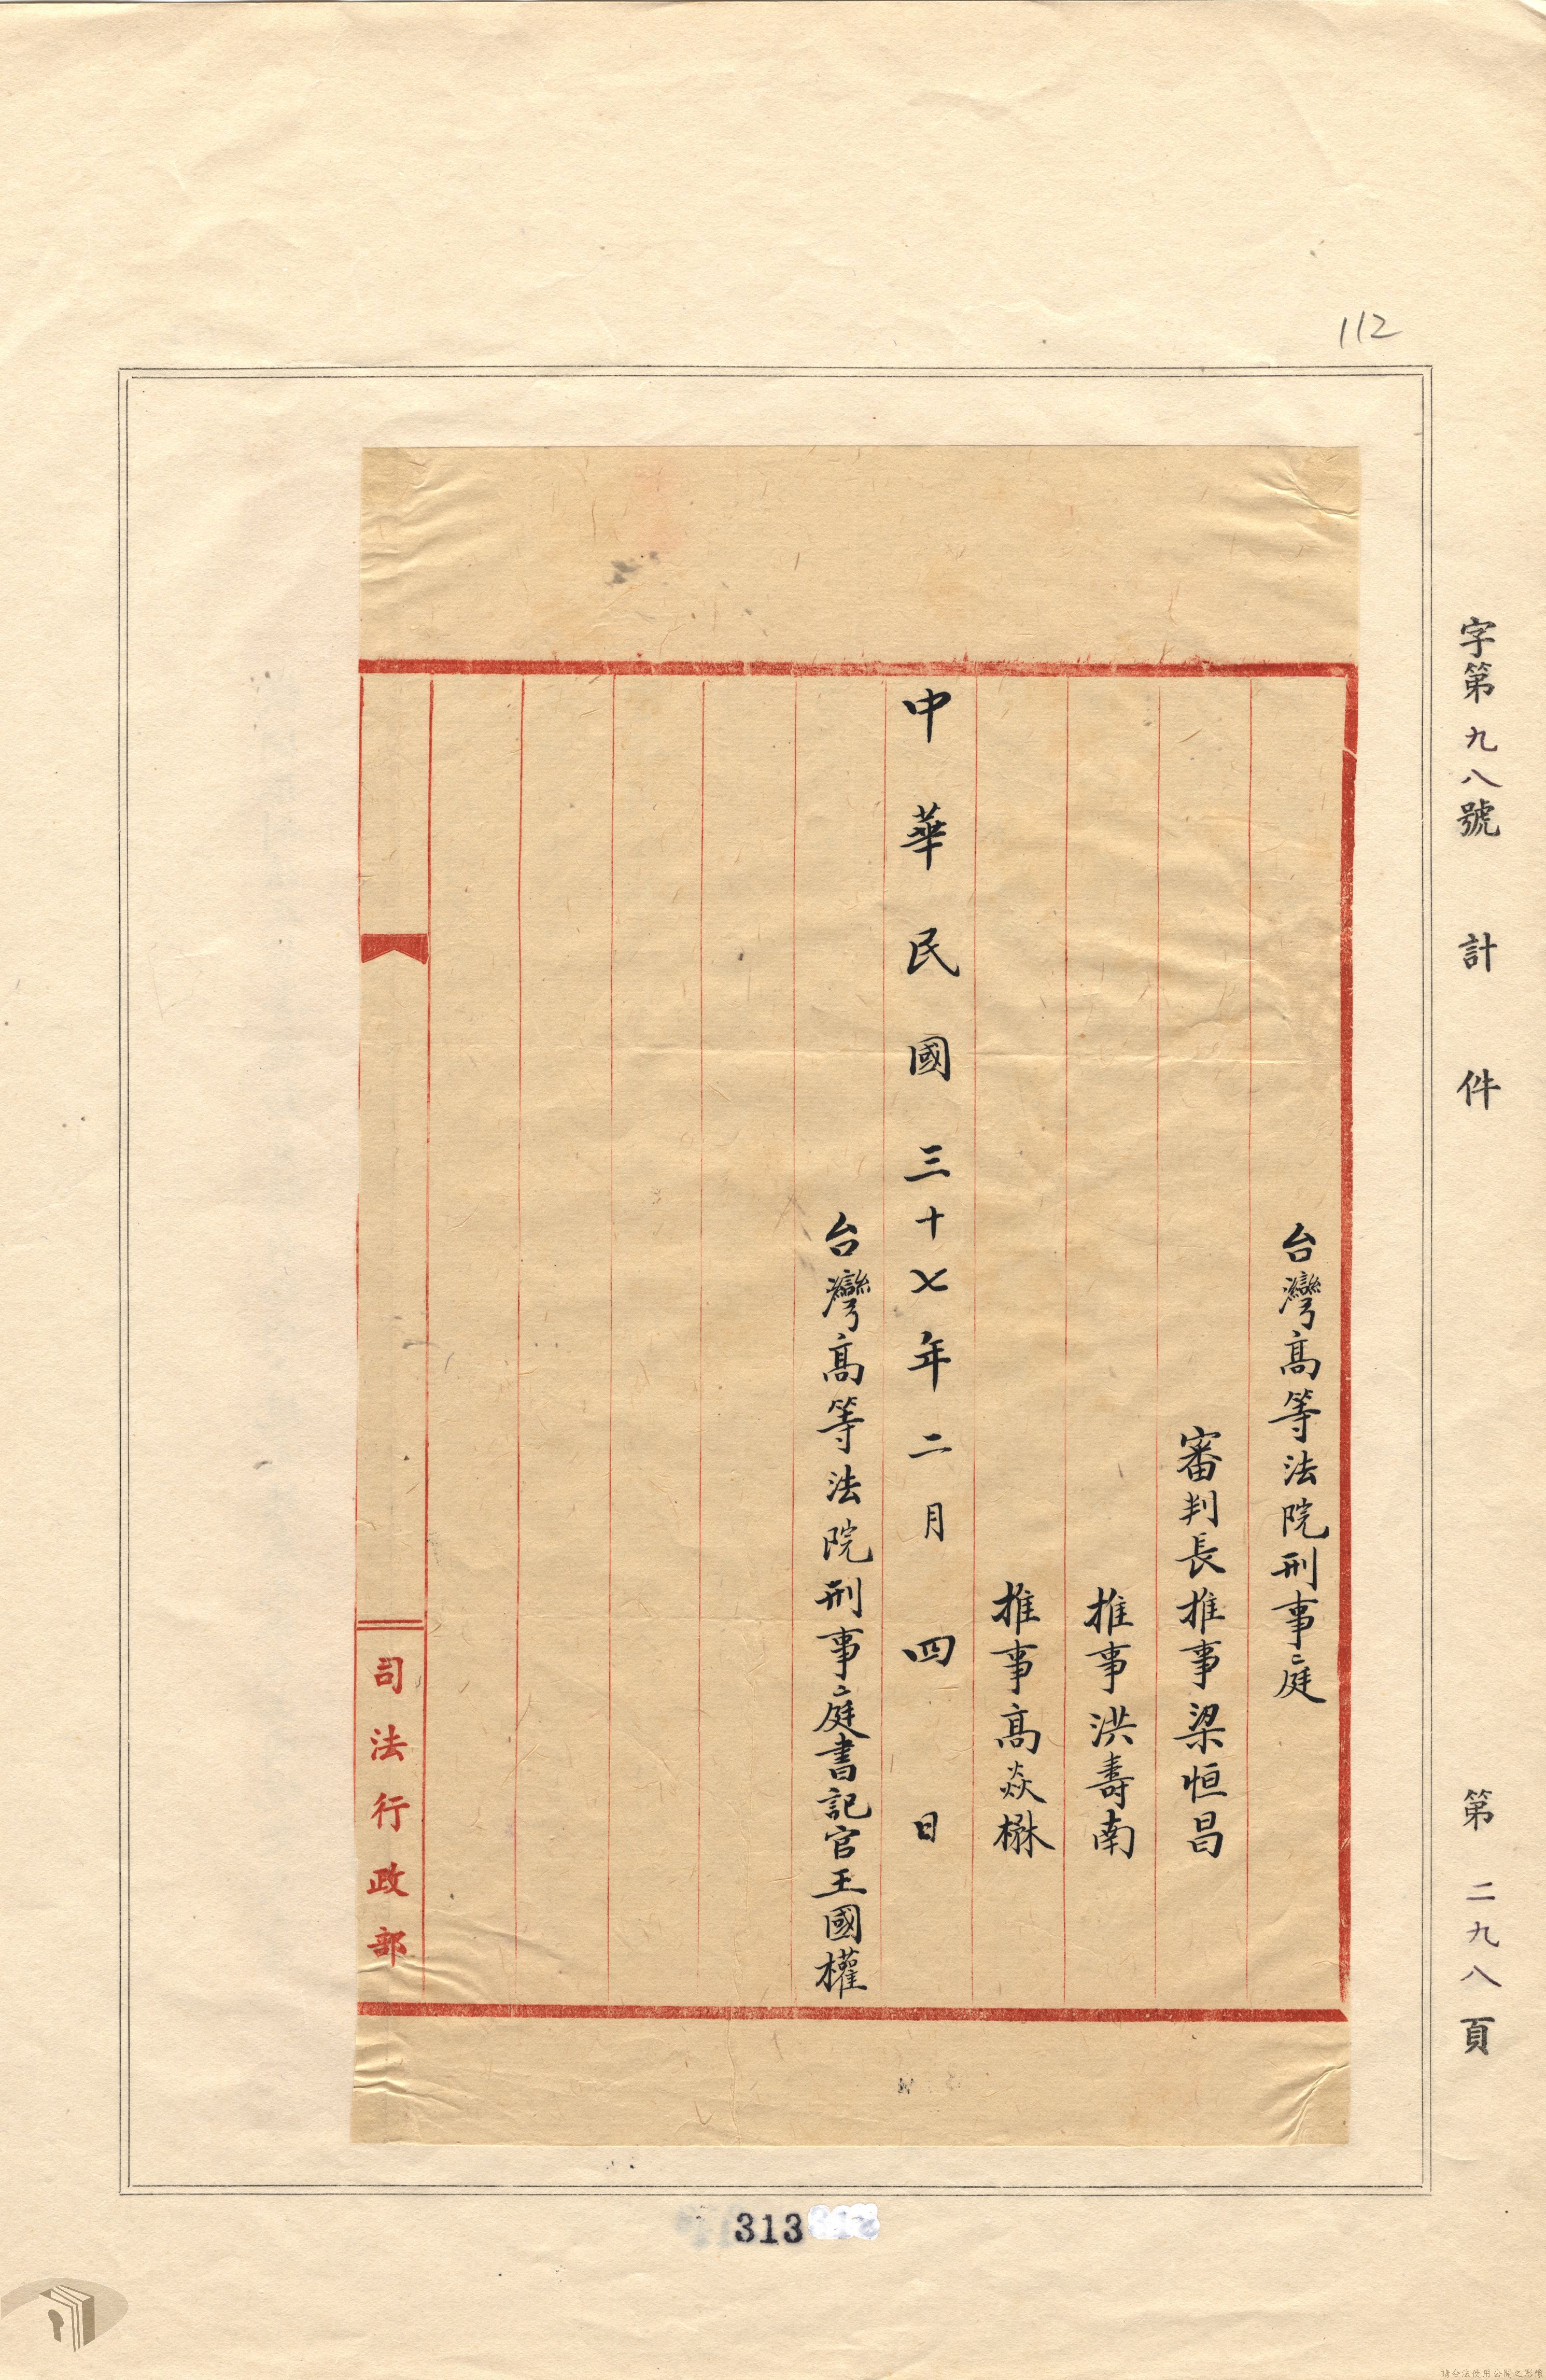 112
字第九八號 計 件 第二九八頁
台灣高等法院刑事庭
審判長推事梁恒昌
推事洪壽南
推事高焱楙
中華民國三十七年二月四日
台灣高等法院刑事庭書記官王國權
司法行政部
313
請合法使用公開之影像